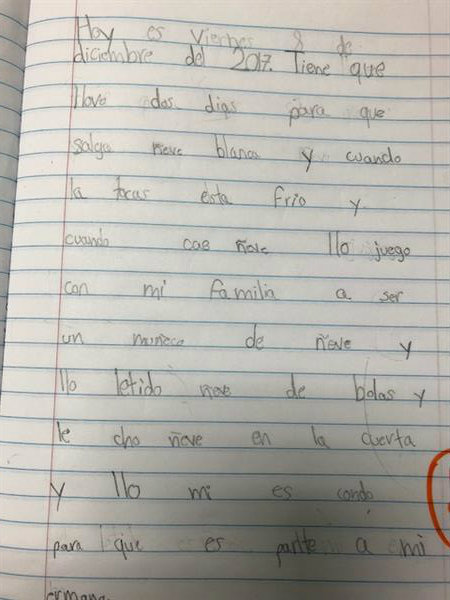 Hoy es Viernes 8 de
diciembre del 2017. Tiene que
llovo dos dias para que
salga neve blanca y cuando
la tocas esta frio y
cuando cae ñeve llo juego
con mi familia a ser
un muñeco de ñeve y
llo letido neve de bolas y
le cho ñeve en la cuerta
y llo mi es condo
para que es pante a mi
ermana